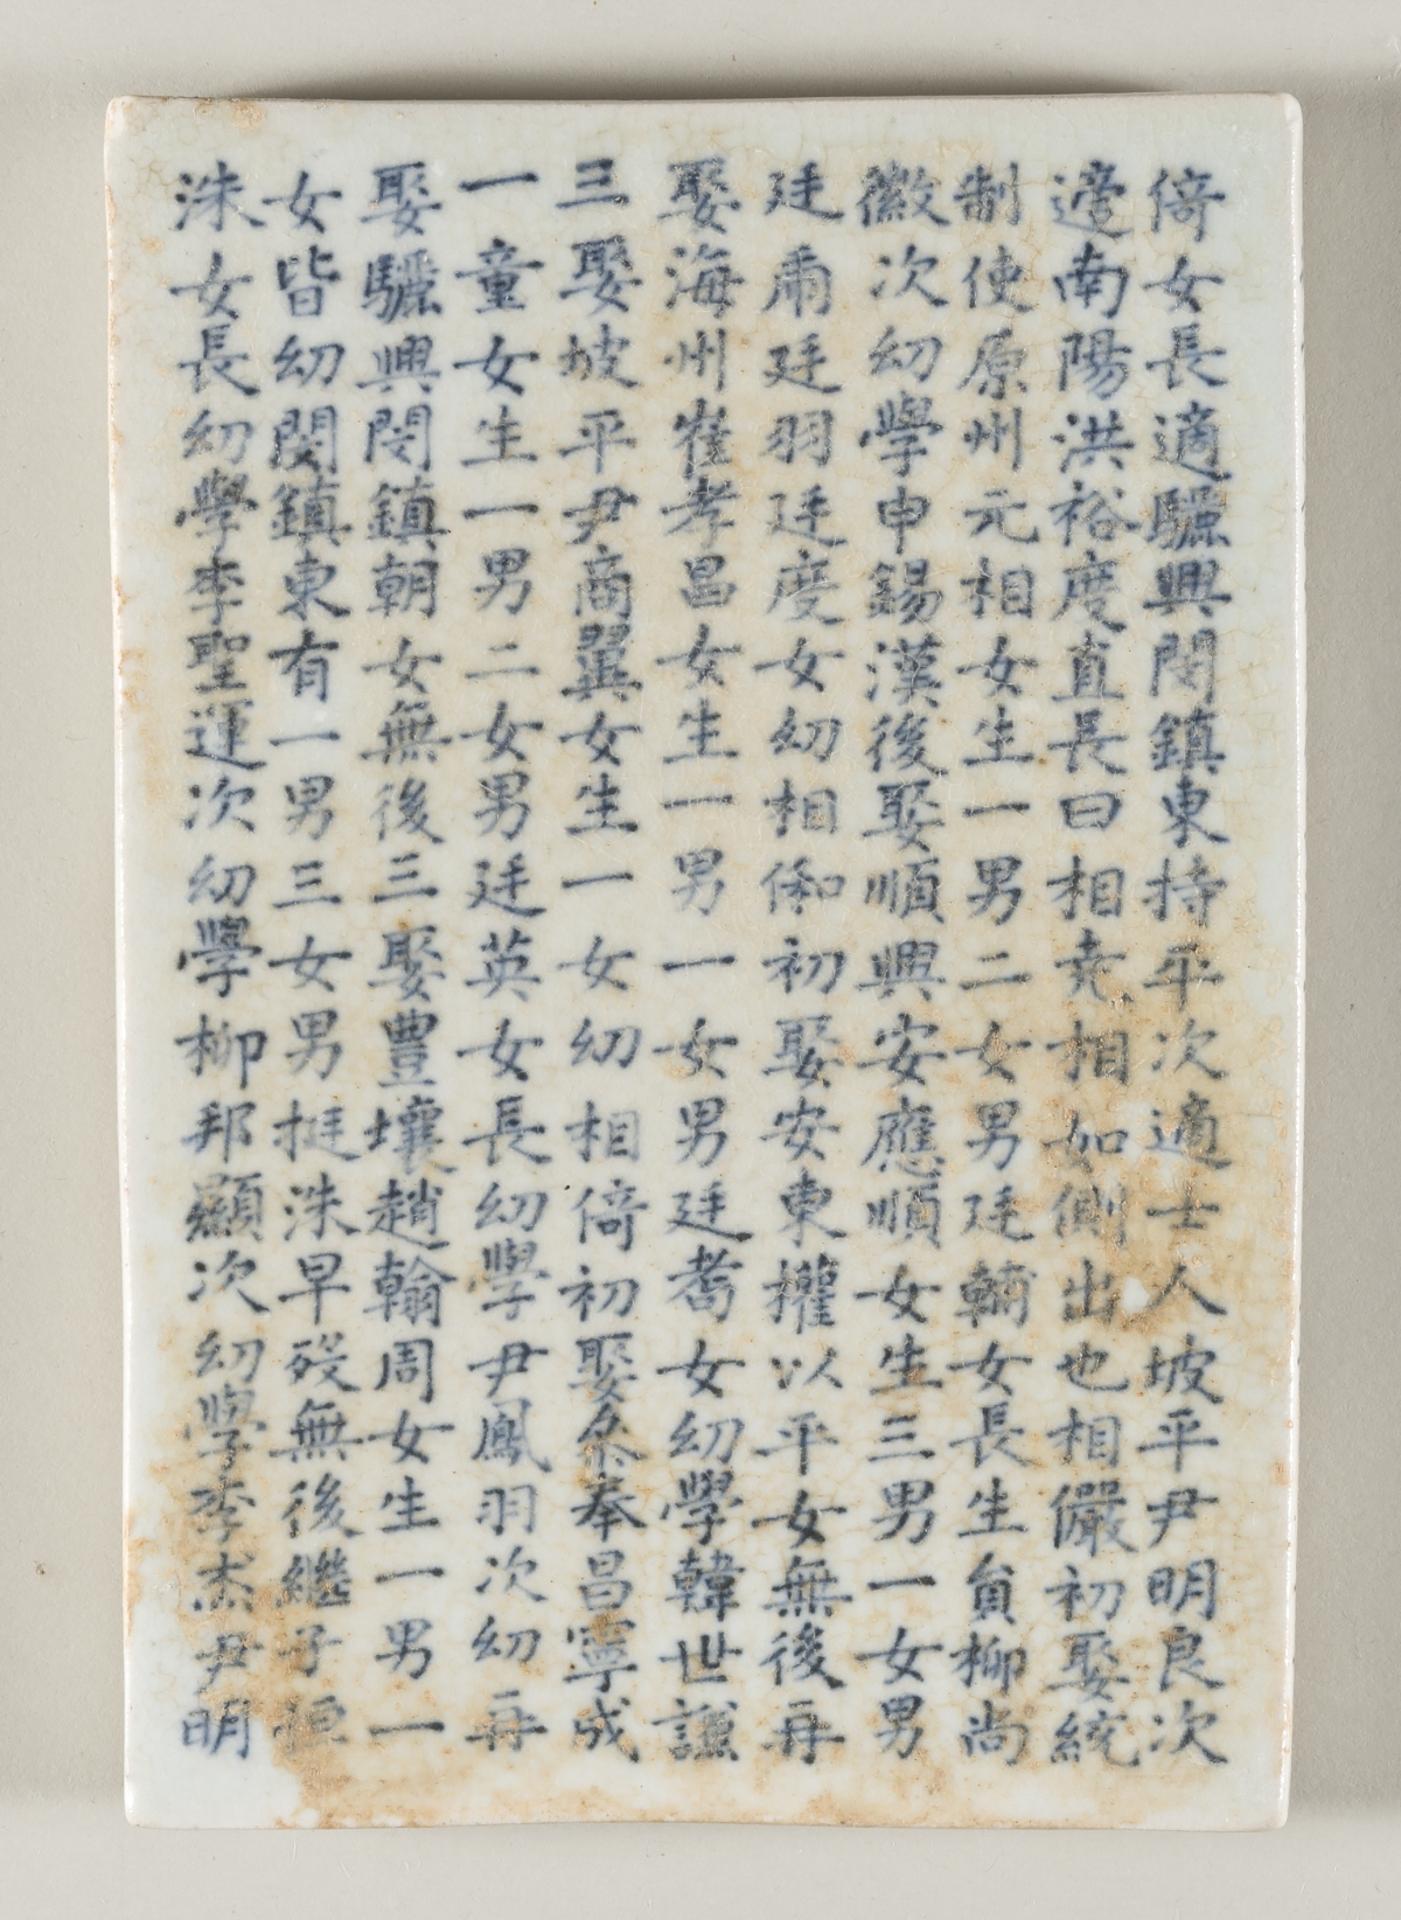 倚女長適驪興閔鎮東持平次適士人坡平尹明良次
適南陽洪裕度直長曰相堯相如側出也相儼初娶統
制使原州元相女生一男二女男廷輔女長生員柳尚
徽次幼學申錫漢後娶順興安應順女生三男一女男
廷爾廷羽廷度女幼相俶初娶安東權以平女無後再
娶海州崔孝昌女生一男一女男廷耇女幼學韓世謙
三娶坡平尹商翼女生一女幼相倚初娶叅奉昌寧成
一童女生一男二女男廷英女長幼學尹鳳羽次幼再
娶驪興閔鎮朝女無後三娶豊壤趙翰周女生一男一
女皆幼閔鎮東有一男三女男挺洙早歿無後繼子恒
洙女長幼學李聖運次幼學柳邦顯次幼學李杰尹明